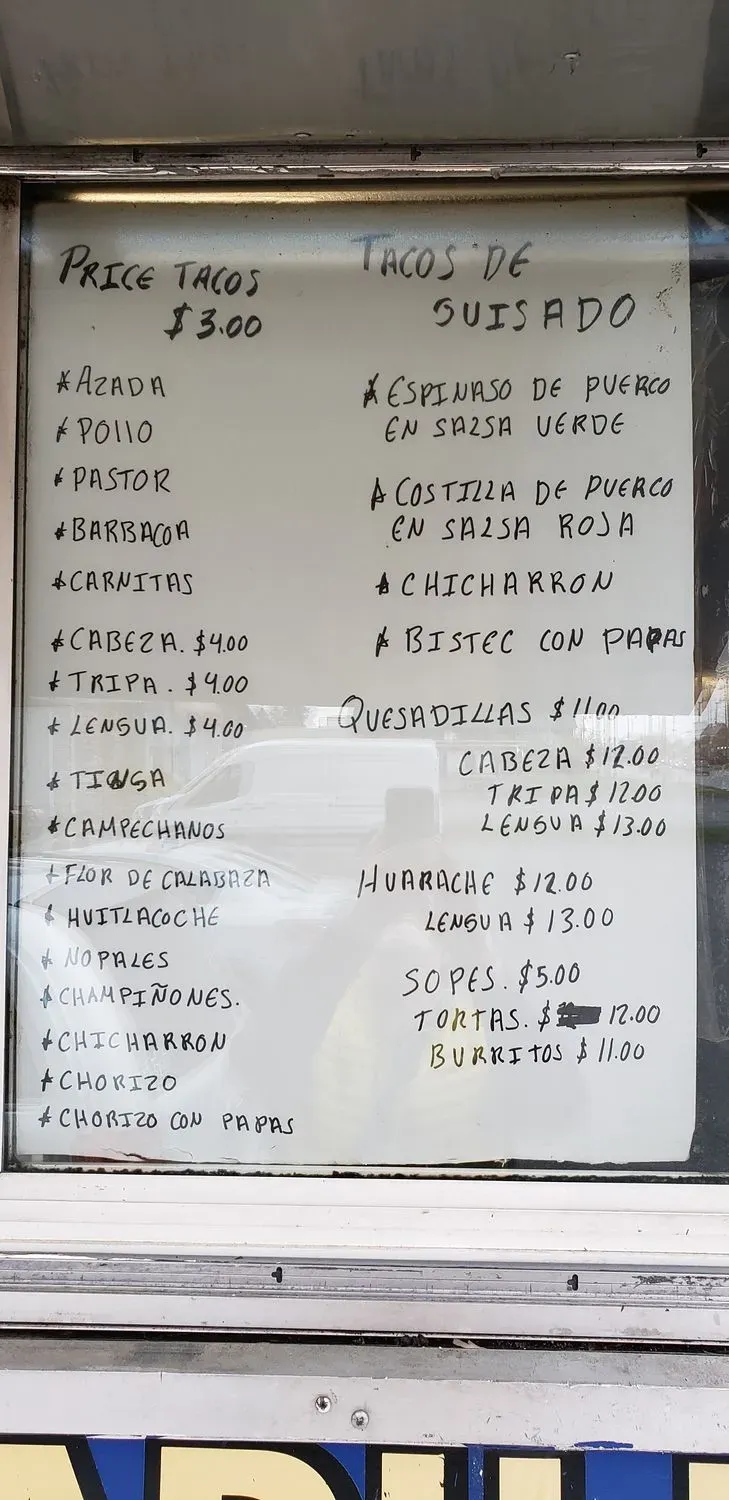 PRICE TACOS
$3.00
*AZADA
*POLLO
*PASTOR
*BARBACOA
*CARNITAS
*CABEZA. $4.00
*TRIPA. $4.00
*LENGUA. $4.00
*TINGA
*CAMPECHANOS
*FLOR DE CALABAZA
*HUITLACOCHE
*NOPALES
*CHAMPIÑONES.
*CHICHARRON
*CHORIZO
*CHORIZO CON PAPAS
TACOS DE
GUISADO
*ESPINASO DE PUERCO
EN SALSA VERDE
*COSTILLA DE PUERCO
EN SALSA ROJA
*CHICHARRON
*BISTEC CON PAPAS
QUESADILLAS $11.00
CABEZA $12.00
TRIPA $12.00
LENGUA $13.00
HUARACHE $12.00
LENGUA $13.00
SOPES. $5.00
TORTAS. $ 12.00
BURRITOS $11.00